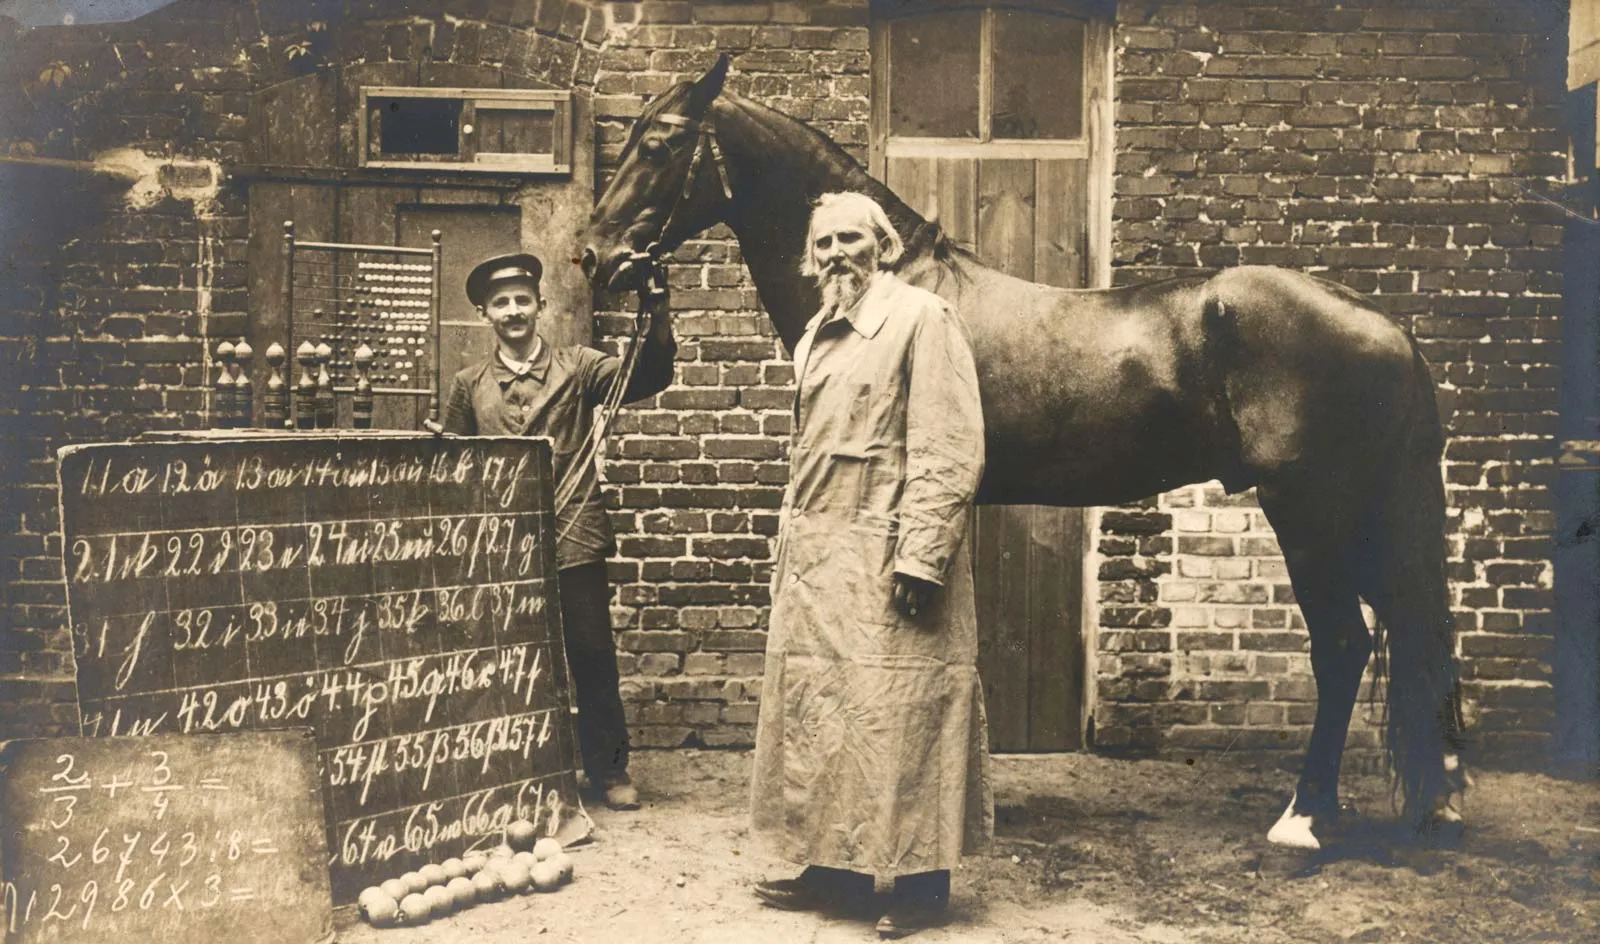 1.1 a 1.2 ä 1.3 au 1.4 äu 1.5 aü 1.6 b 1.7 ch
2.1 ck 2.2 d 2.3 e 2.4 ei 2.5 eu 2.6 f 2.7 g
3.1 h 3.2 i 3.3 ie 3.4 j 3.5 k 3.6 l 3.7 m
4.1 n 4.2 o 4.3 ö 4.4 p 4.5 q 4.6 r 4.7 s
5.4 st 5.5 ß 5.6 5.7 t
6.4 w 6.5 6.6 6.7 z
2/3 + 3/4 =
26743 : 8 =
12986 x 3 =